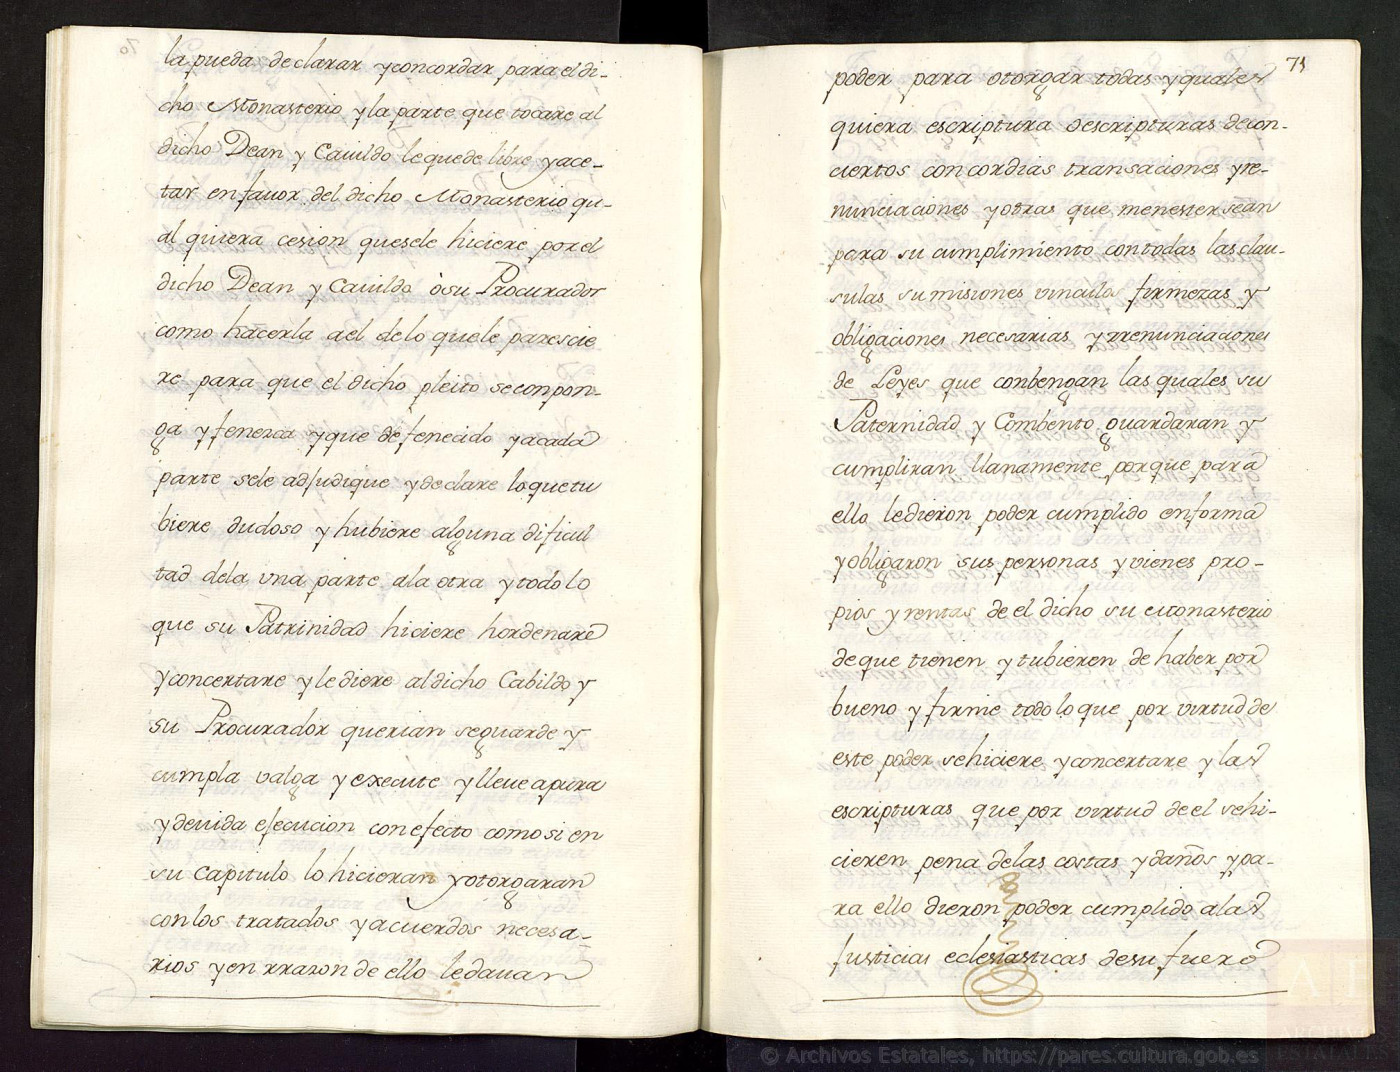 la pueda declarar y concordar para el di-
cho Monasterio y la parte que tocare al
dicho Dean y Cauildo le quede libre y ace-
tar en fauor del dicho Monasterio qu-
al quiera cesion que se le hiciere por el
dicho Dean y Cauildo ò su Procurador
como hacerla a el de lo que le parescie
re para que el dicho pleito se conpon-
ga y fenezca y que de fenecido y a cada
parte se le adjudique y declare lo que tu
biere dudoso y hubiere alguna dificul
tad de la una parte a la otra y todo lo
que su Patrinidad hiciere hordenare
y concertare y le diere al dicho Cabildo y
su Procurador querian se guarde y
cumpla valga y execute y lleue a pura
y deuida ejecucion con efecto como si en
su Capitulo lo hicieran y otorgaran
con los tratados y acuerdos necesa-
rios y en rrazon de ello le dauan
71
poder para otorgar todas y quales
quiera escriptura o escripturas de con-
ciertos concordias transaciones y re-
nunciaciones y otras que menester sean
para su cumplimiento con todas las clau-
sulas sumisiones vinculos firmezas y
obligaciones necesarias y rrenunciaciones
de Leyes que conbengan las quales su
Paternidad y Combento guardaran y
cumpliran llanamente porque para
ello le dieron poder cumplido en forma
y obligaron sus personas y vienes pro-
pios y rentas de el dicho su Monasterio
de que tienen y tubieren de haber por
bueno y firme todo lo que por virtud de
este poder se hiciere y concertare y las
escripturas que por virtud de el se hi-
cieren pena de las costas y daños y pa-
ra ello dieron poder cumplido a las
Justicias eclesiasticas de su fuero
© Archivos Estatales, https://pares.cultura.gob.es
AE
ARCHIVOS
ESTATALES